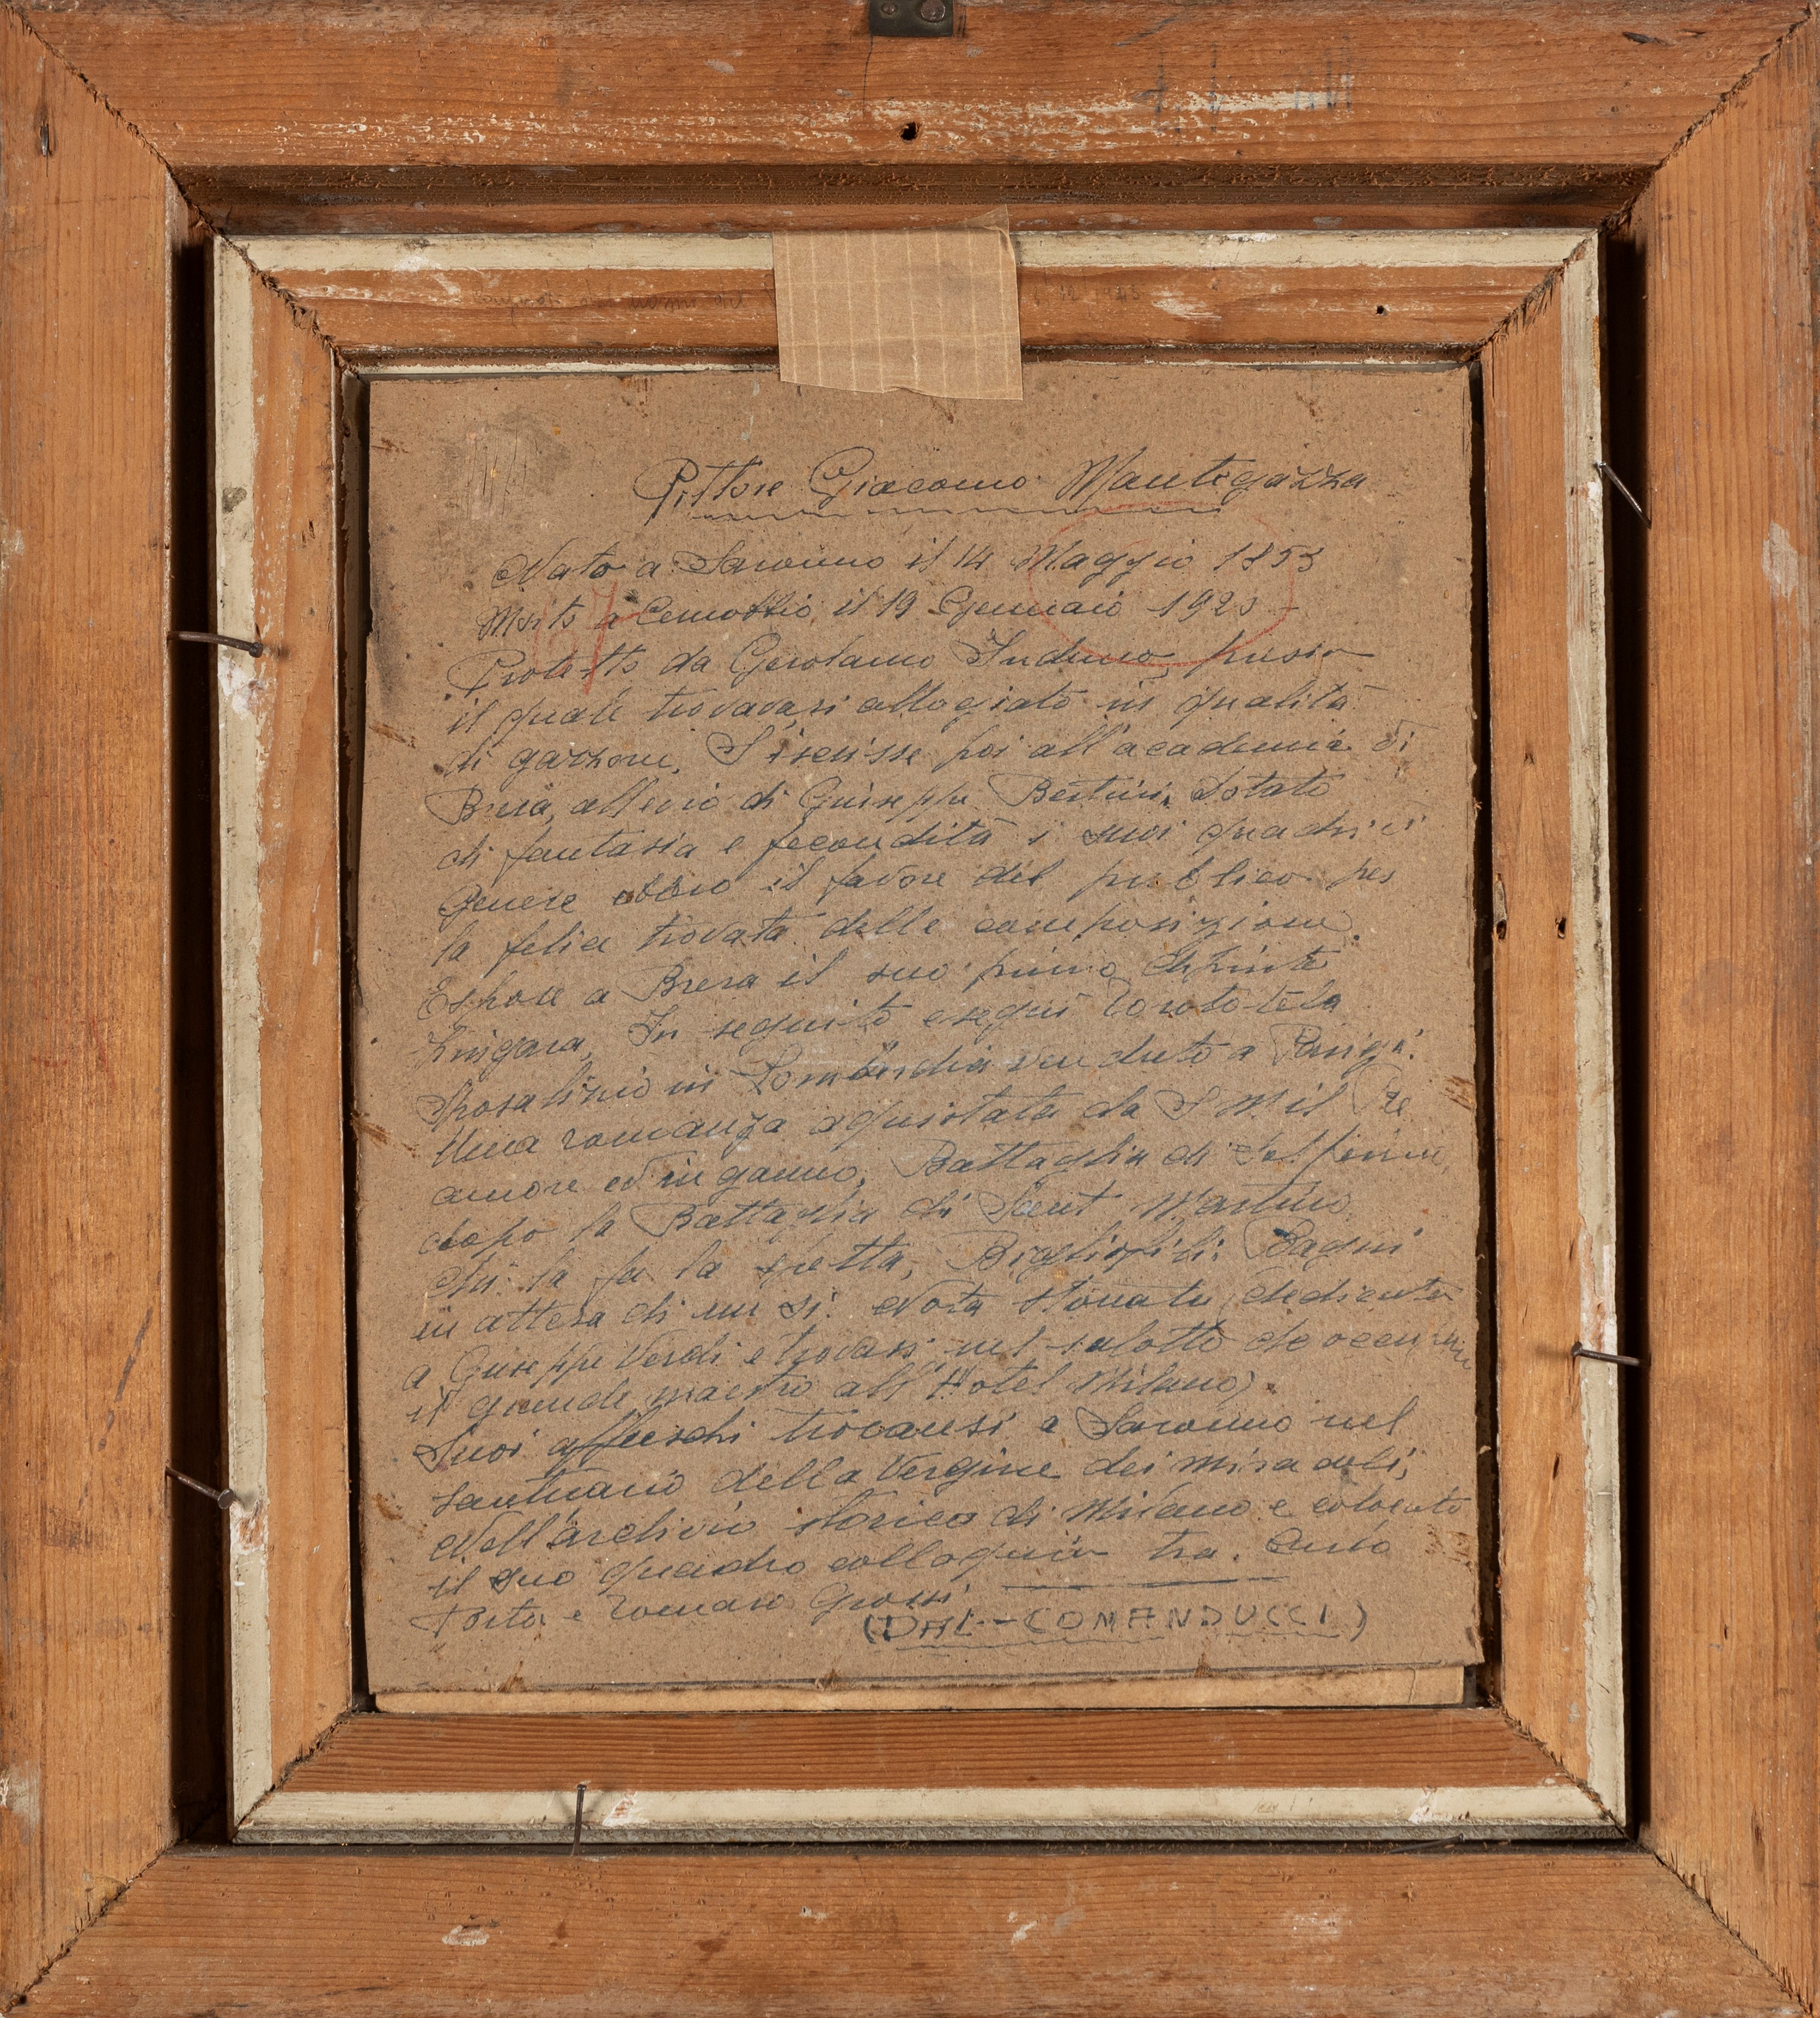 Pittore Giacomo Mantegazza
Nato a Saronno il 14 Maggio 1853
Morto a Cernobbio, il 19 Gennaio 1920
Protetto da Gerolamo Induno, presso
il quale trovavasi allogiato in qualità
di garzone. S'iscrisse poi all'academia di
Brera, allievo di Giuseppe Bertini. Dotato
di fantasia e fecondità i suoi quadri di
Genere ebbero il favore del publico per
la felice trovata delle composizione.
Espose a Brera il suo primo dipinto
Zingara, In seguito eseguì
Sposalizio in Lombardia venduto a Parigi.
Una romanza aquistata da S M il Re
amore ed inganno, Battaglia di Solferino,
dopo la Battaglia di Sant Martino
chi la fa la spetta, Bagni
in attesa di un si. Nota stonata (dedicata
a Giuseppe Verdi e trovasi nel salotto
il grande maestro all'Hotel Milano).
Suoi affreschi trovansi a Saronno nel
santuario della Vergine dei miracoli;
Nell'archivio storico di Milano e colocato
il suo quadro colloquio tra. Carlo
Porta e Tomaso Grossi
(DAL - COMANDUCCI)